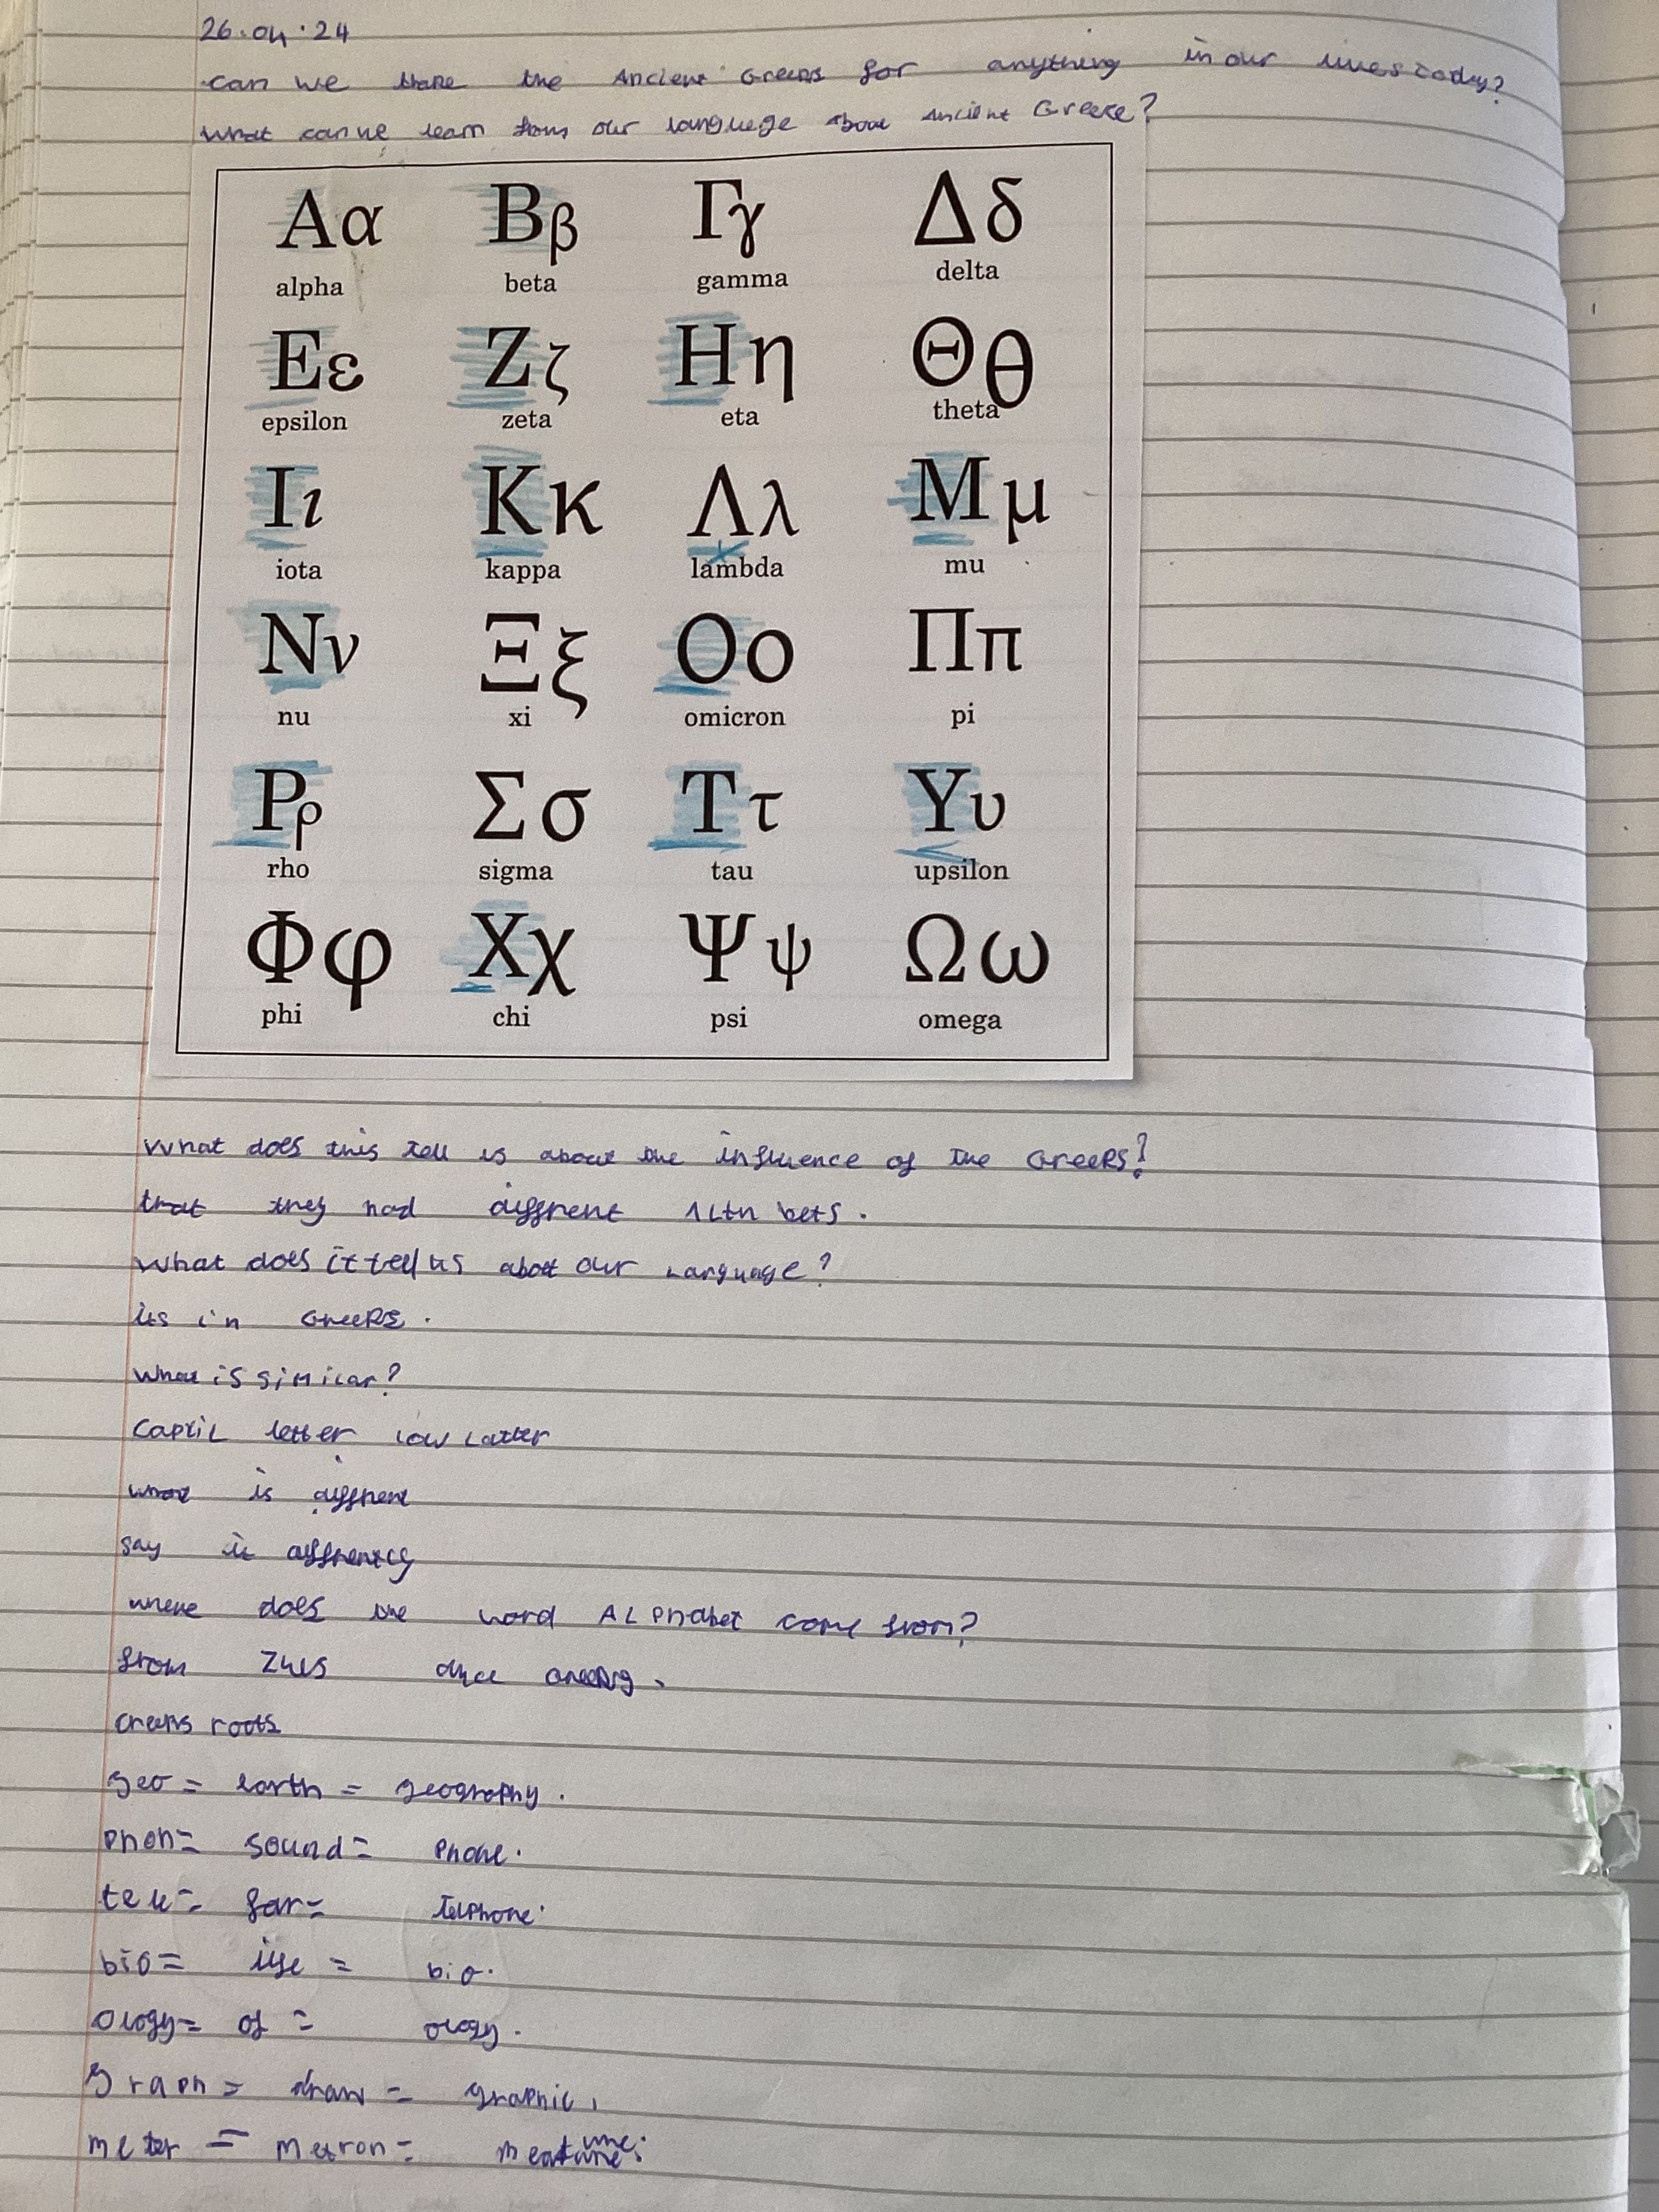 26.04.24
can we thank the Ancient Greeks for anything in our lives today?
What can we learn from our language about Ancient Greece?
Αα Ββ Γγ Δδ
alpha beta gamma delta
Εε Ζζ Ηη Θθ
epsilon zeta eta theta
Ιι Κκ Λλ Μμ
iota kappa lambda mu
Νν Ξξ Οο Ππ
nu xi omicron pi
Ρρ Σσ Ττ Υυ
rho sigma tau upsilon
Φφ Χχ Ψψ Ωω
phi chi psi omega
What does this tell us about the influence of The Greeks?
that they had diffrent
What does it tell us about our Language?
its in Greeks.
What is similar?
letter low latter
what is diffrent
say it diffrently
where does the word ALPhabet come from?
from Zues
Greeks roots
geo = earth = geography.
phon= sound= Phone.
tele= far= Telphone.
bio= life = bio.
ology= of = ology.
graph = draw = graphic.
meter = metron=